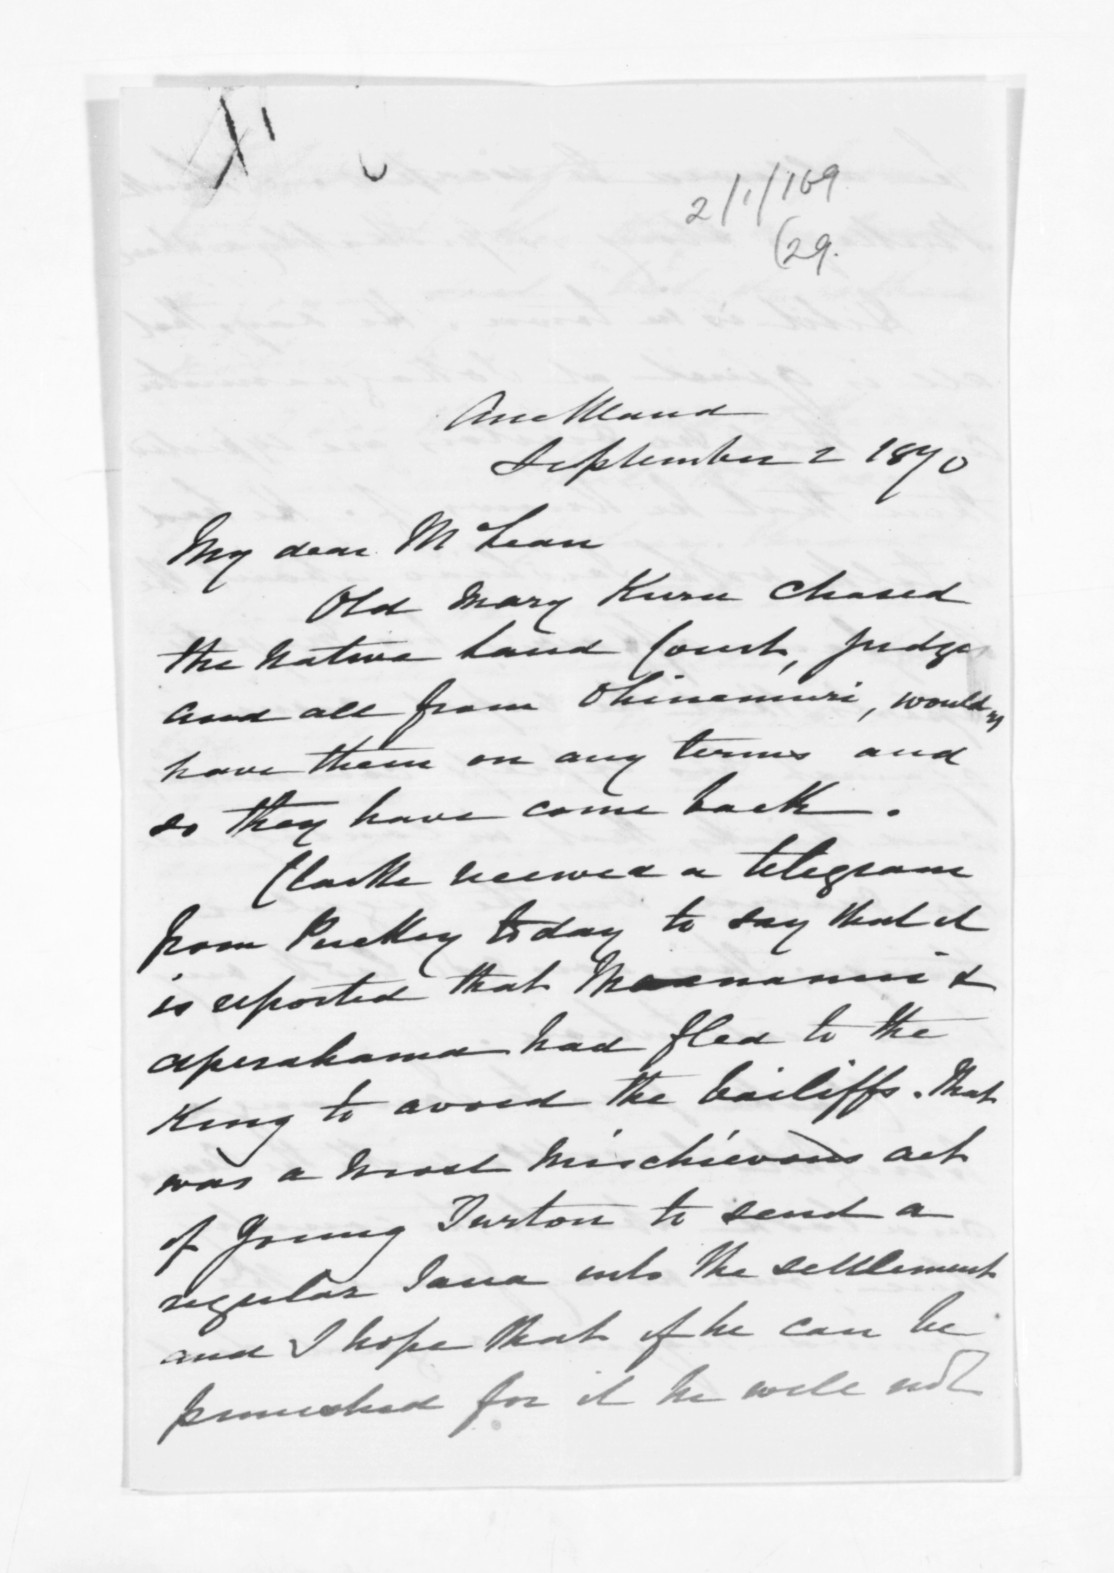 2/1/169
(29.
Auckland
September 2 1870
My dear McLean
Old Mary Kuru chased
the Native Land Court, Judge
and all from Ohinemuri, wouldn
have them on any terms and
so they have come back.
Clarke received a telegram
from Puckey today to say that it
is reported that &
Aperahama had fled to the
King to avoid the bailiffs. That
was a most mischievous act
of young Turton to send a
regular into the settlement
and I hope that if he can be
punished for it he will not